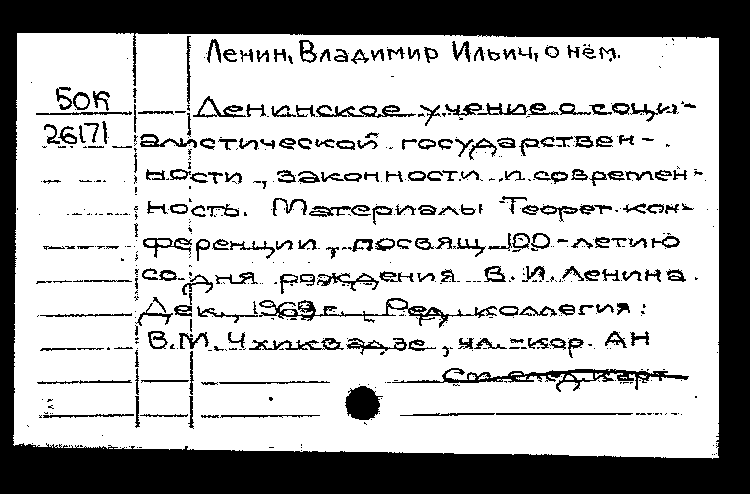 Ленин, Владимир Ильич, о нём.
БОК
Ленинское учение о соци-
26171
алистической государствен-
ности, законности и современ-
ность. Материалы Теорет. кон-
ференции, посвящ. 100-летию
со дня рождения В. И. Ленина.
Дек. 1969 г. Ред. коллегия:
В.М. Чхиквадзе, чл.-кор. АН
См. след. карт